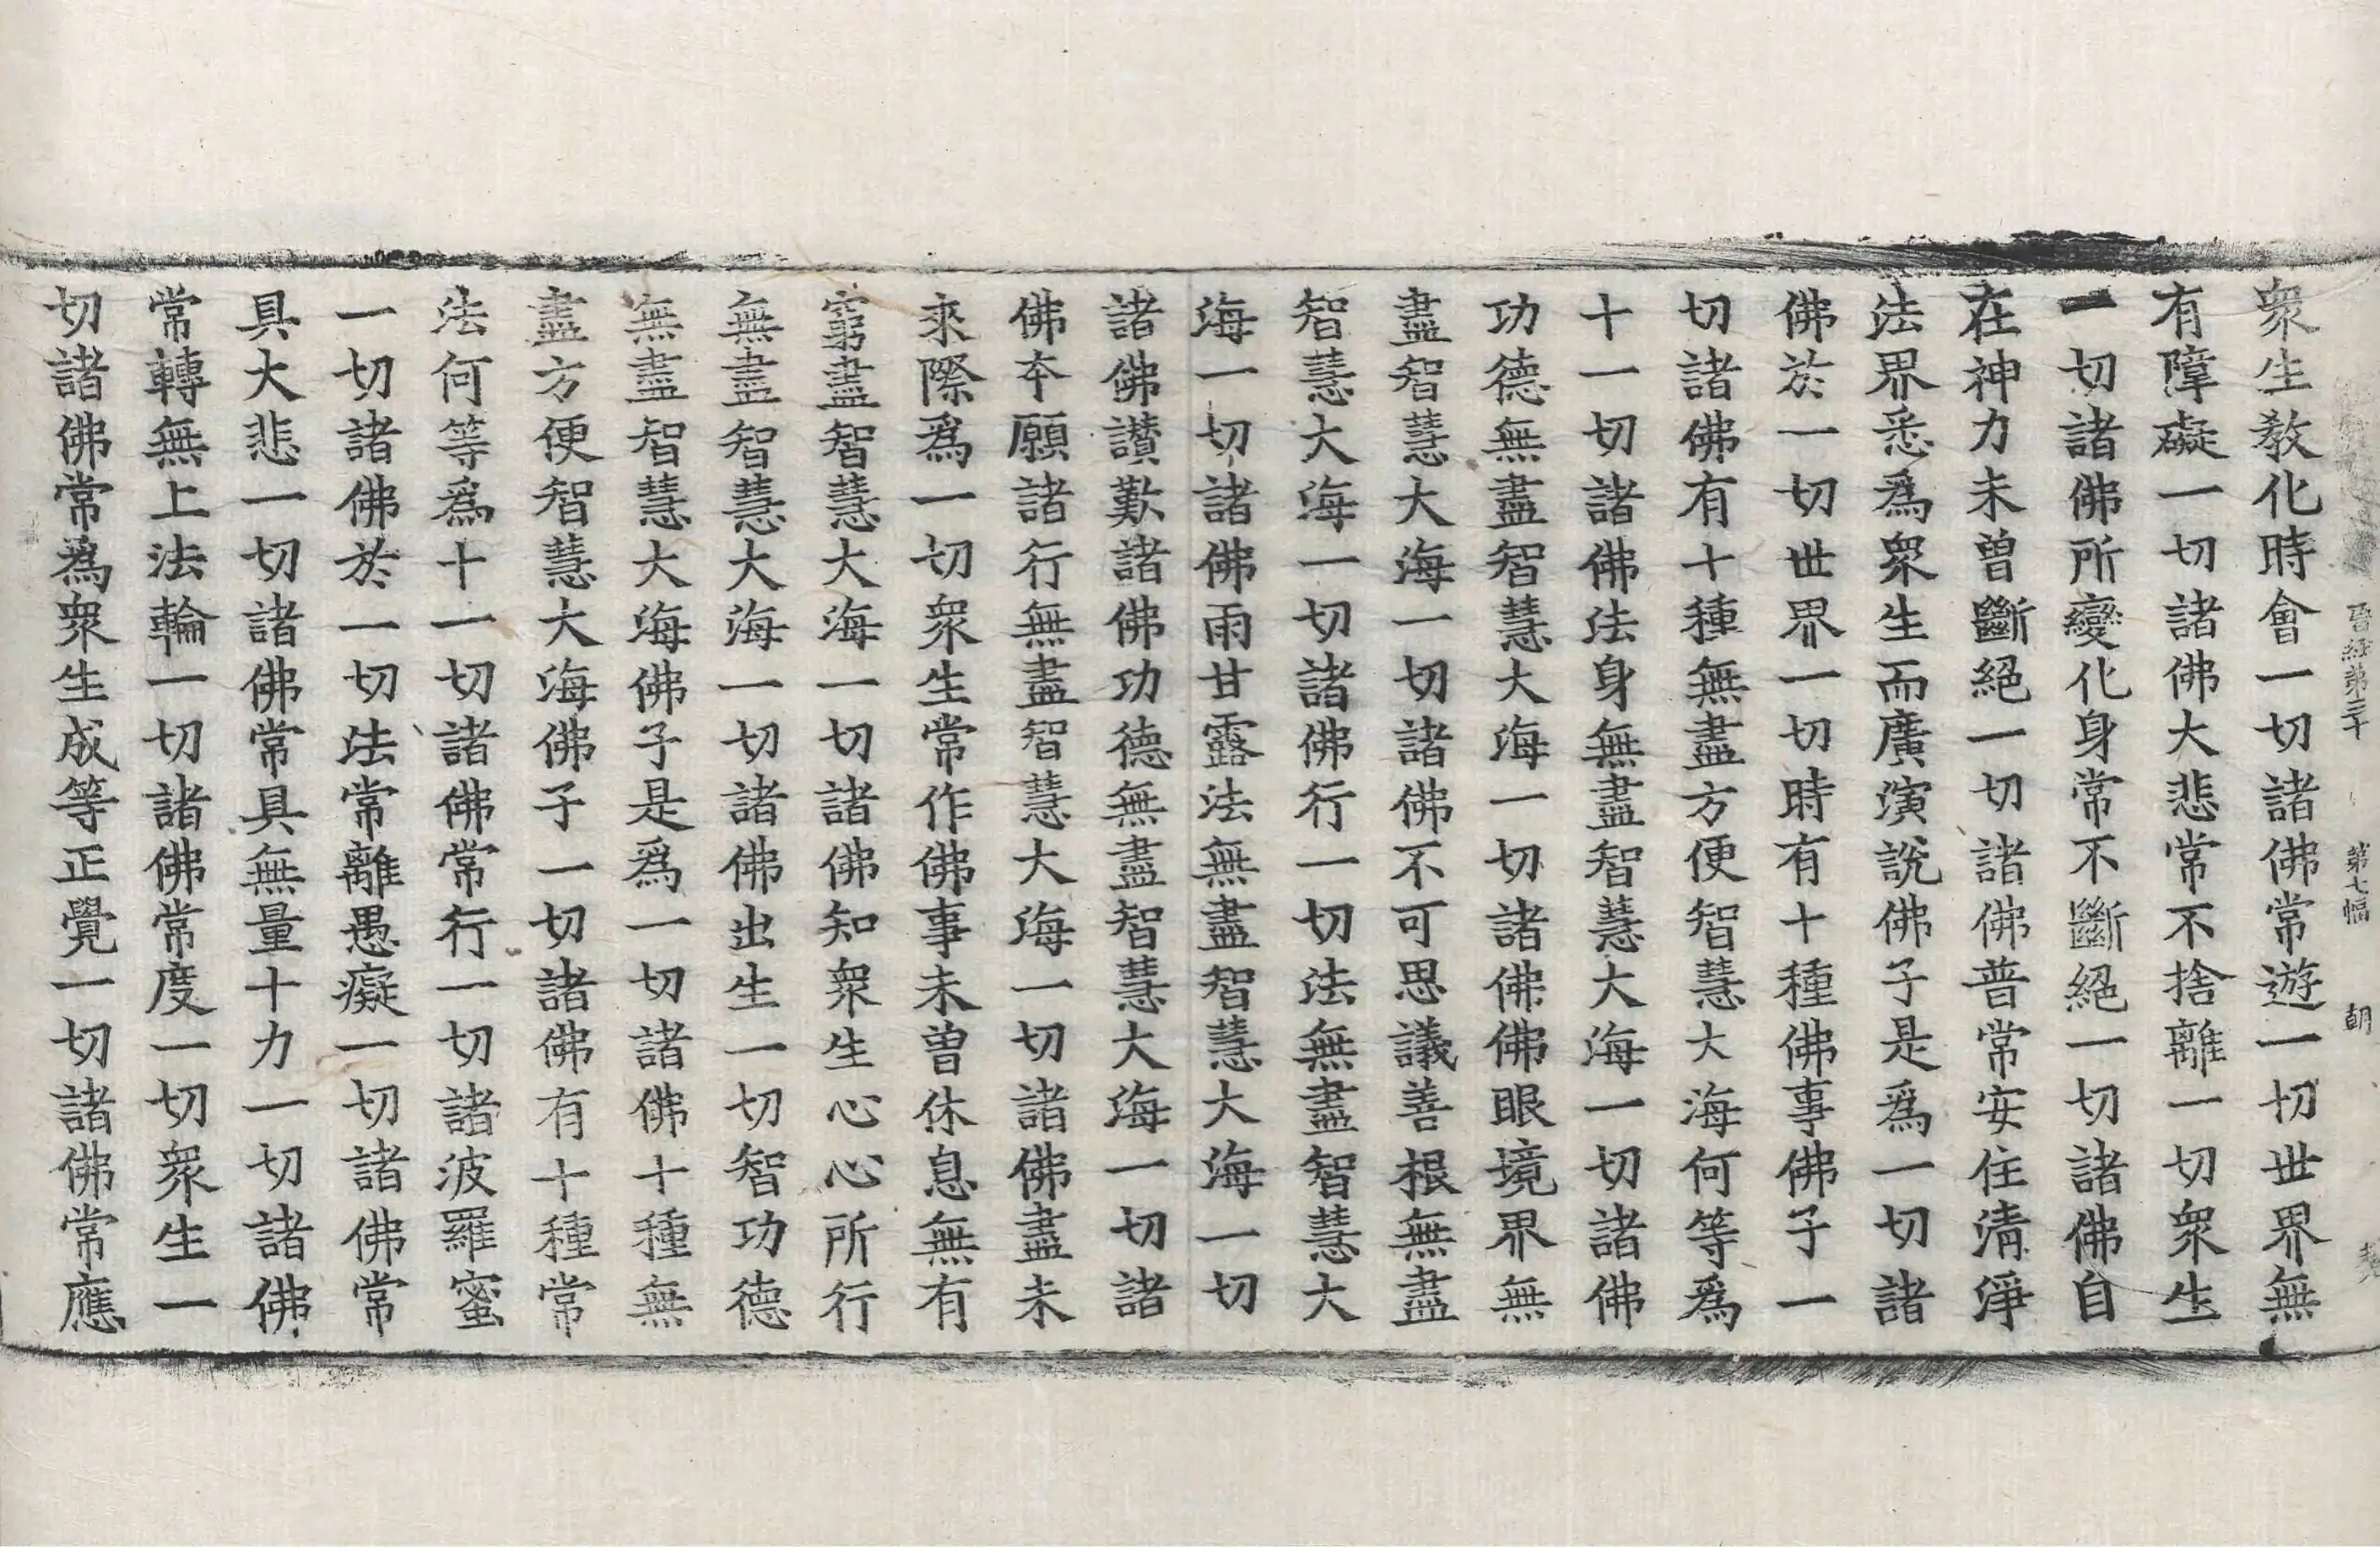 晋經第三十　第七幅　朝
衆生教化時會一切諸佛常遊一切世界無
有障礙一切諸佛大悲常不捨離一切衆生
一切諸佛所變化身常不斷絕一切諸佛自
在神力未曾斷絕一切諸佛普常安住清淨
法界悉爲衆生而廣演說佛子是爲一切諸
佛於一切世界一切時有十種佛事佛子一
切諸佛有十種無盡方便智慧大海何等爲
十一切諸佛法身無盡智慧大海一切諸佛
功德無盡智慧大海一切諸佛佛眼境界無
盡智慧大海一切諸佛不可思議善根無盡
智慧大海一切諸佛行一切法無盡智慧大
海一切諸佛雨甘露法無盡智慧大海一切
諸佛讃歎諸佛功德無盡智慧大海一切諸
佛夲願諸行無盡智慧大海一切諸佛盡未
來際爲一切衆生常作佛事未曾休息無有
窮盡智慧大海一切諸佛知衆生心心所行
無盡智慧大海一切諸佛出生一切智功德
無盡智慧大海佛子是爲一切諸佛十種無
盡方便智慧大海佛子一切諸佛有十種常
法何等爲十一切諸佛常行一切諸波羅蜜
一切諸佛於一切法常離愚癡一切諸佛常
具大悲一切諸佛常具無量十力一切諸佛
常轉無上法輪一切諸佛常度一切衆生一
切諸佛常爲衆生成等正覺一切諸佛常應